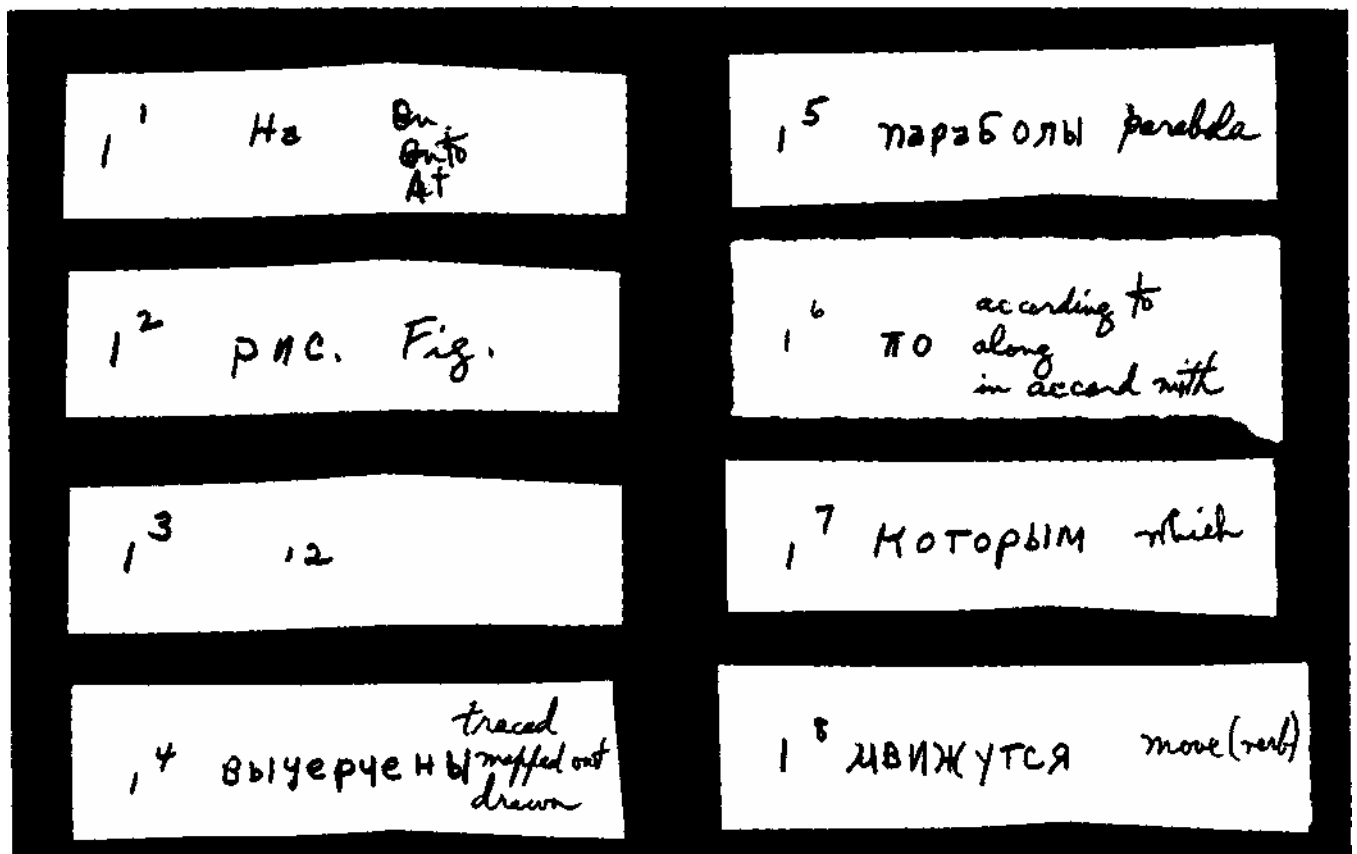 1 1 На On
Onto
At
1 2 рис. Fig.
1 3 12
1 4 вычерчены traced
mapped out
drawn
1 5 параболы parabola
1 6 по according to
along
in accord with
1 7 которым which
1 8 движутся move (verb)